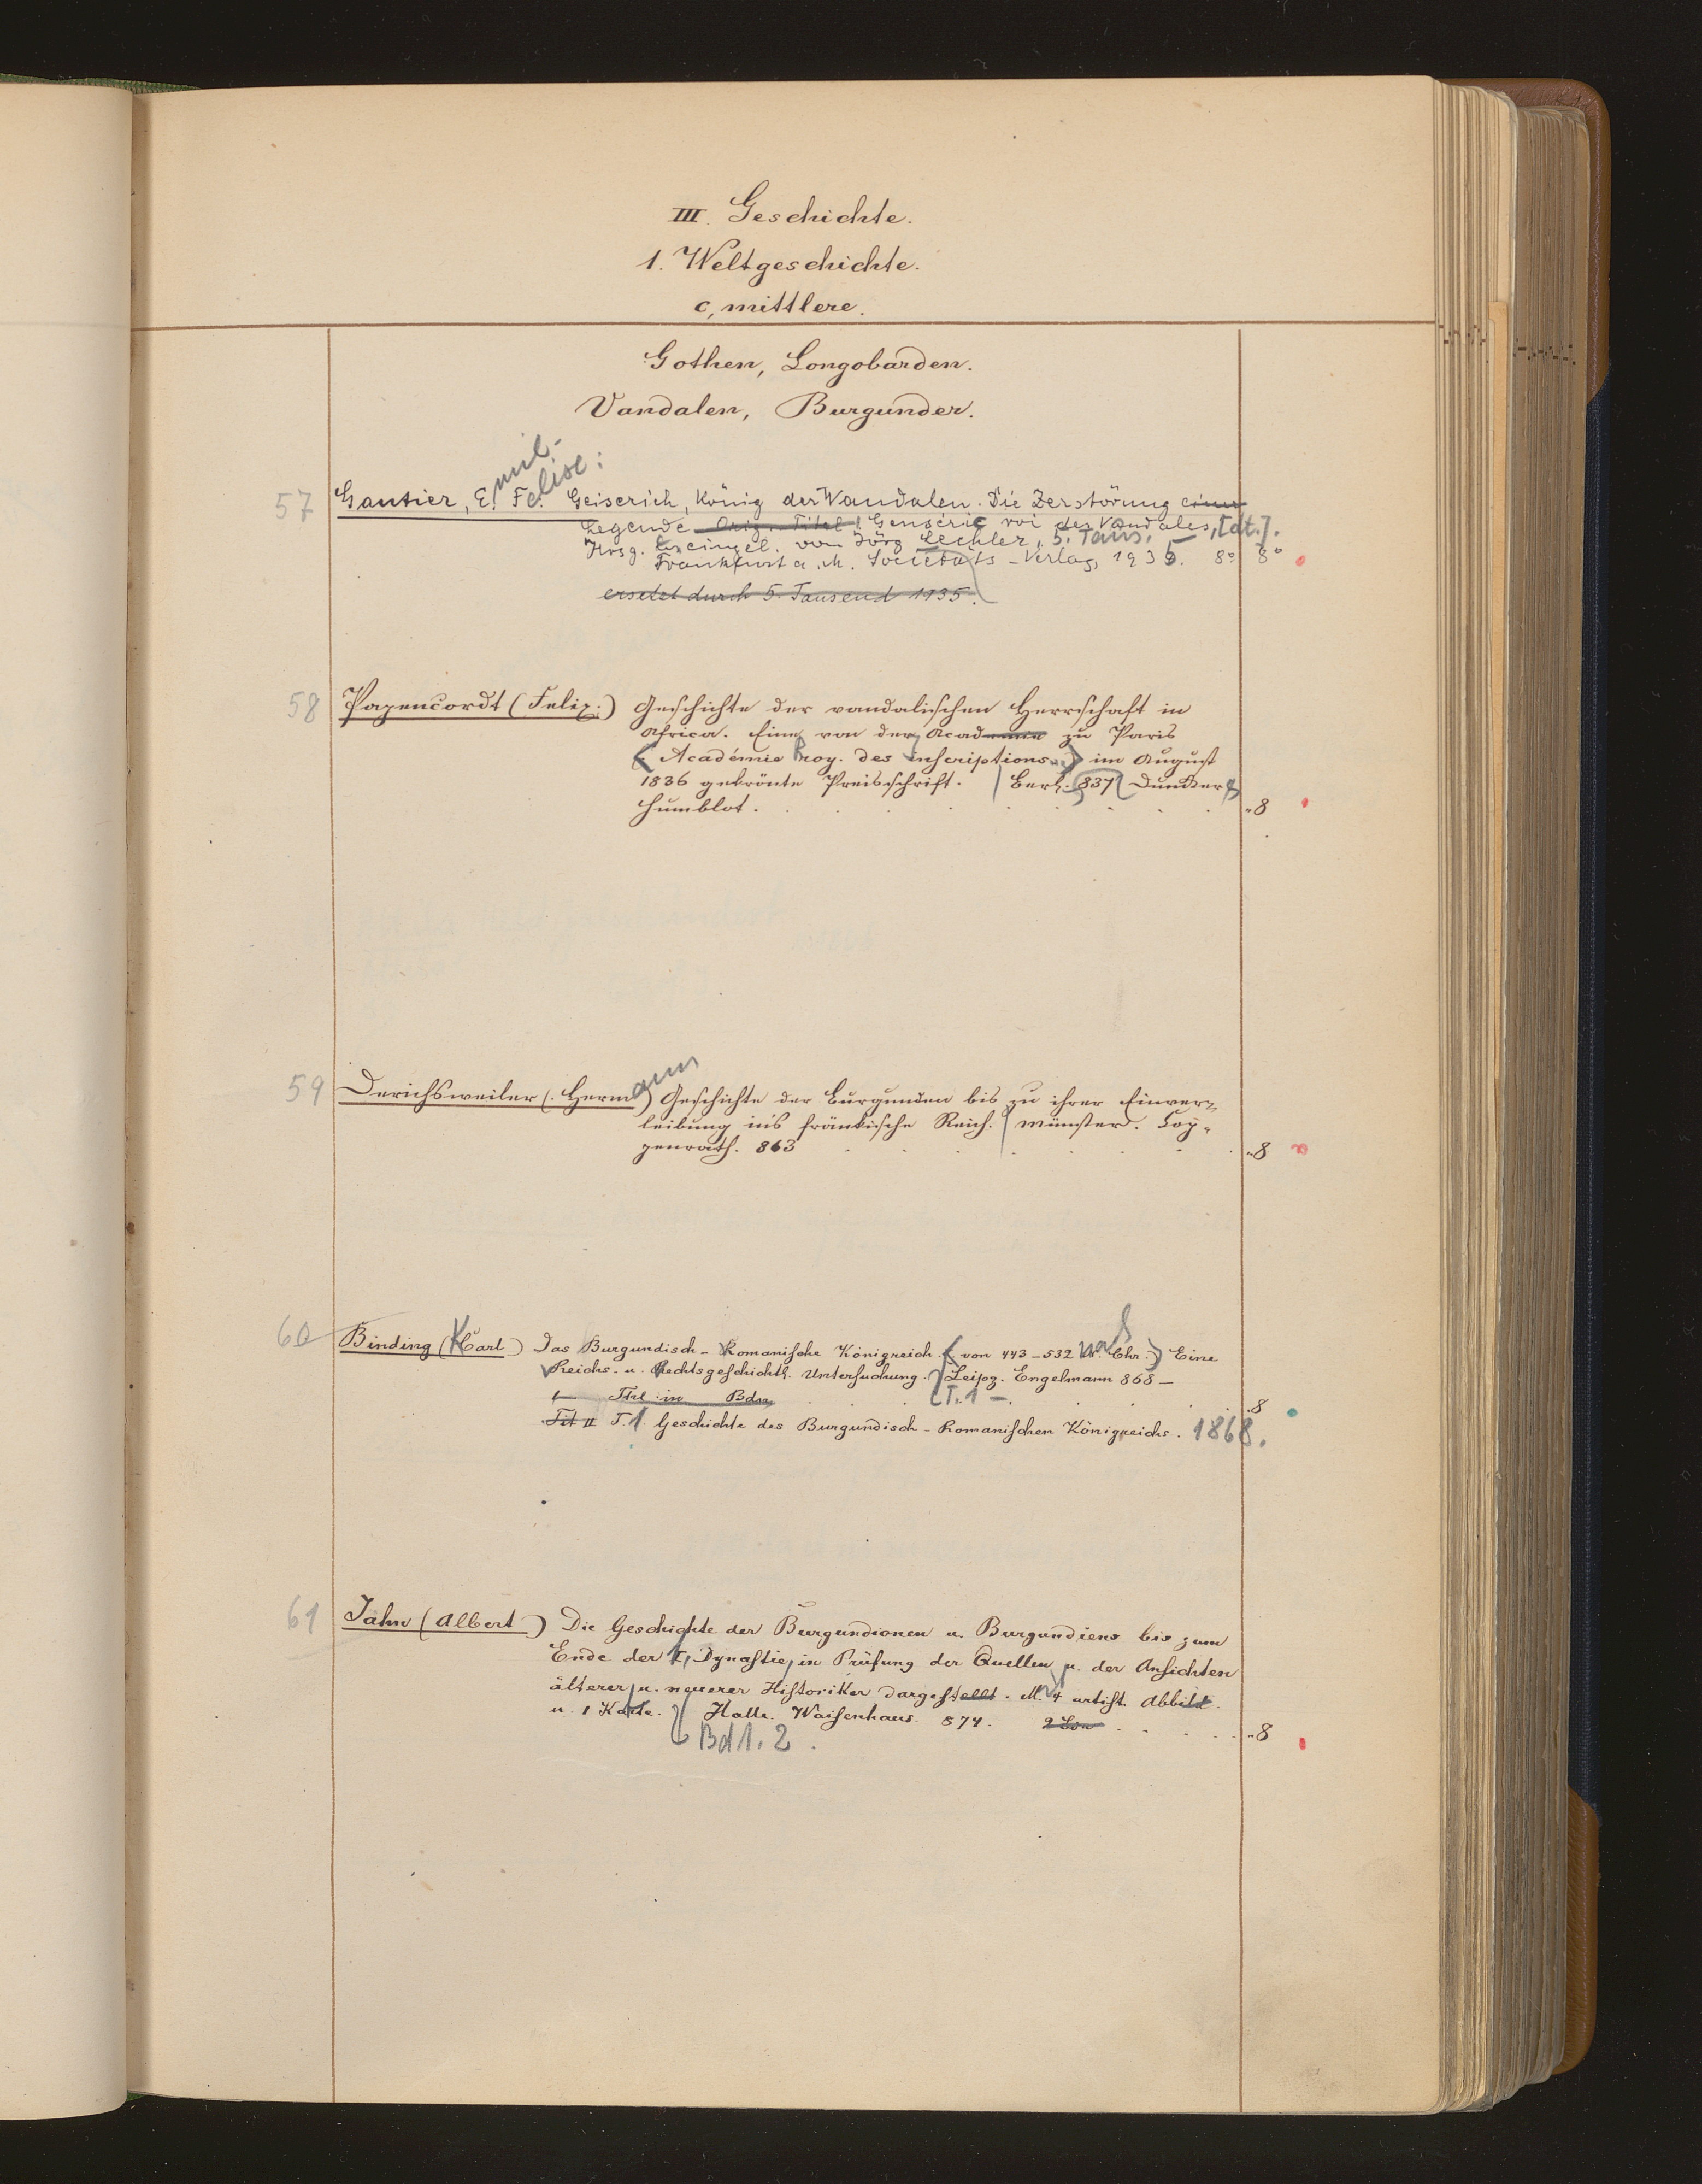 III. Geschichte.
1. Weltgeschichte.
c, mittlere.
Gothen, Longobarden.
Vandalen, Burgunder.
57 Gautier, Emil-Felix: Geiserich, König der Wandalen. Die Zerstörung einer
Legende. Orig.-Titel: Genséric roi des Vandales, [dt.].
Hrsg. u. eingel. von Jörg Lechler, 5. Taus.
Frankfurt a. M. Societäts-Verlag, 1935. 8° 8°
ersetzt durch 5. Tausend 1935.
58 Papencordt (Felix.) Geschichte der vandalischen Herrschaft in
Africa. Eine von der Academie zu Paris
(Académie roy. des inscriptions) im August
1836 gekrönte Preisschrift. Berl. 837 Duncker &
Humblot. 8
59 Derichsweiler (Hermann) Geschichte der Burgunden bis zu ihrer Einver-
leibung ins fränkische Reich. Münster. Cop-
penrath. 863 8
60 Binding (Karl) Das Burgundisch-Romanische Königreich (von 443-532 n. Chr.) Eine
Reichs- u. Rechtsgeschichtl. Untersuchung. Leipz. Engelmann 868 –
Thle in Bdn T. 1 –. 8
Tit II T. 1. Geschichte des Burgundisch-Romanischen Königreichs. 1868.
61 Jahn (Albert) Die Geschichte der Burgundionen u. Burgundiens bis zum
Ende der I, Dynastie, in Prüfung der Quellen u. der Ansichten
älterer u. neuerer Historiker dargestellt. M. 4 artist. Abbild.
u. 1 Karte. Halle. Waisenhaus. 874. 8
Bd 1. 2.